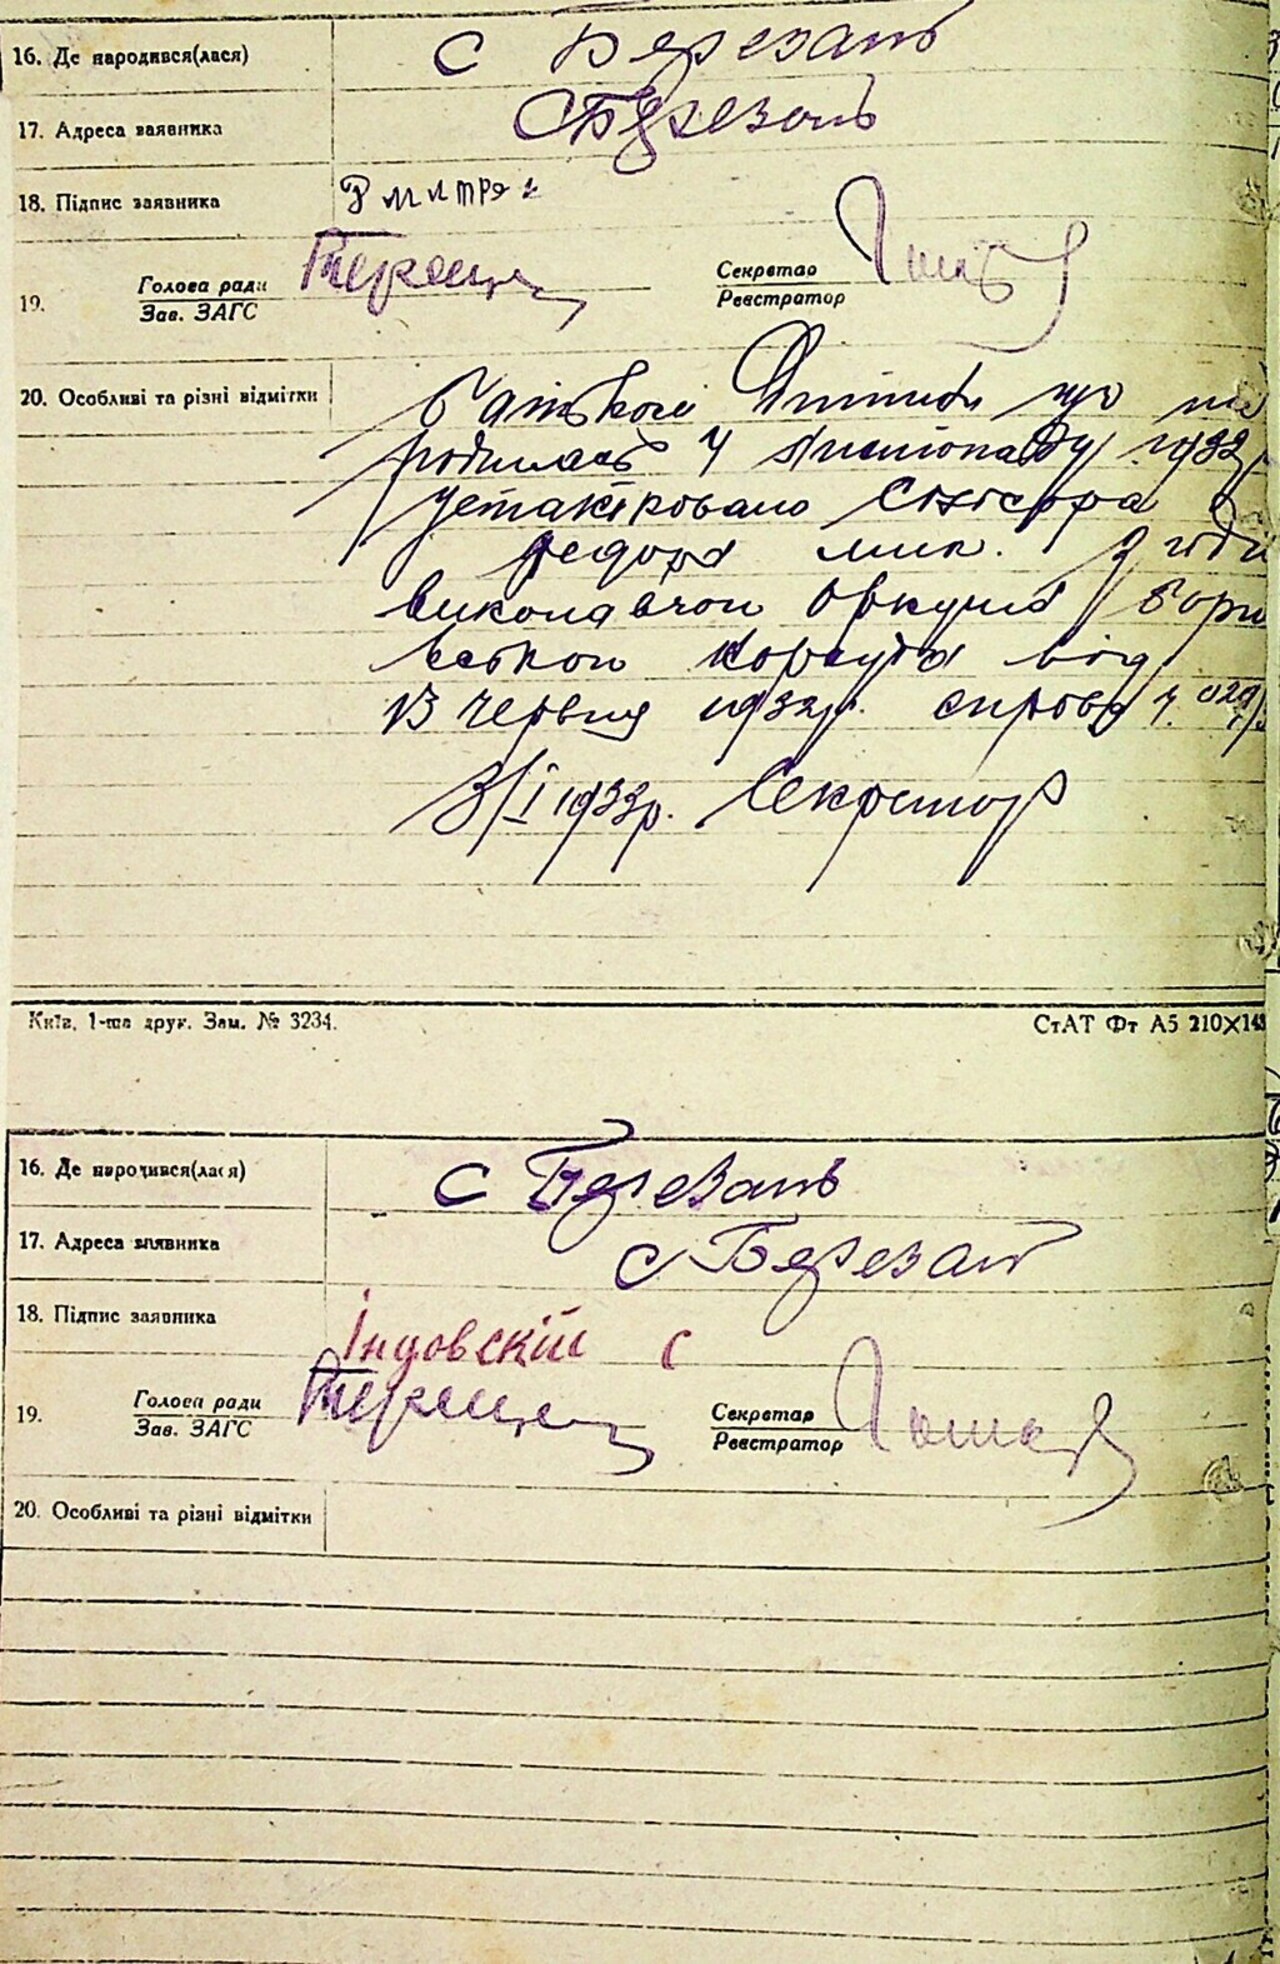 16. Де народився(лася) с Березань
17. Адреса заявника с Березань
18. Підпис заявника Дмитрен
19. Голова ради Секретар
Зав. ЗАГС Реєстратор
20. Особливі та різні відмітки батьком Дитини що на
родилась 4 листопаду 1932
устактіровано
федора мик. Згідн
виконавчої Бори
вської від
13 червня 1932р. справа ч.
3/I 1933р. Секретар
Київ, 1-ша друк. Зам. № 3234. СтАТ Фт А5 210×148
16. Де народився(лася) с Березань
17. Адреса заявника с Березань
18. Підпис заявника Індовскій С
19. Голова ради Секретар
Зав. ЗАГС Реєстратор
20. Особливі та різні відмітки